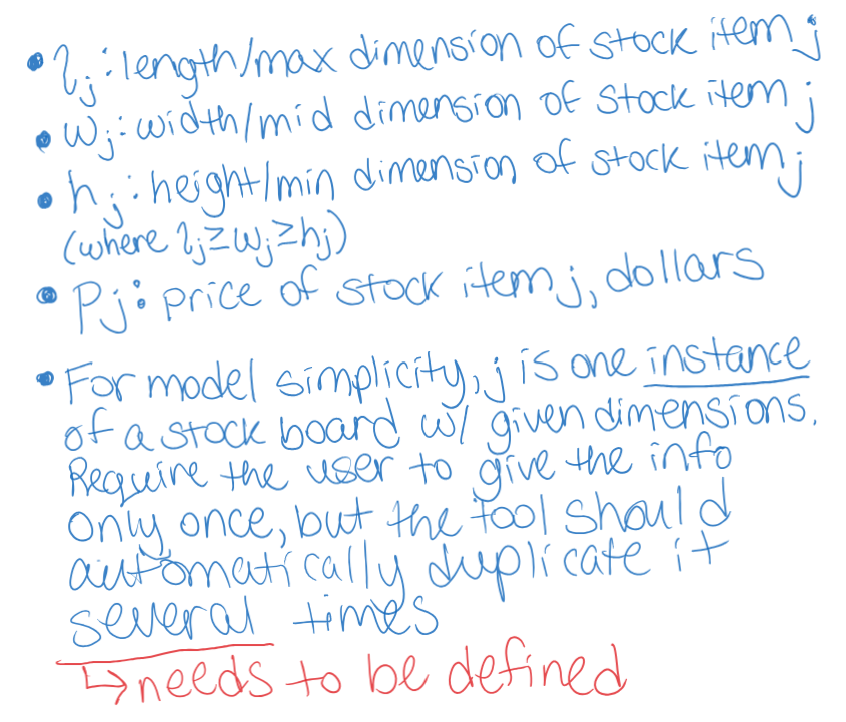 • lj: length/max dimension of stock item j
• wj: width/mid dimension of stock item j
• hj: height/min dimension of stock item j
(where lj≥wj≥hj)
• Pj: price of stock item j, dollars
• For model simplicity, j is one instance
of a stock board w/ given dimensions.
Require the user to give the info
only once, but the tool should
automatically duplicate it
several times
↳ needs to be defined